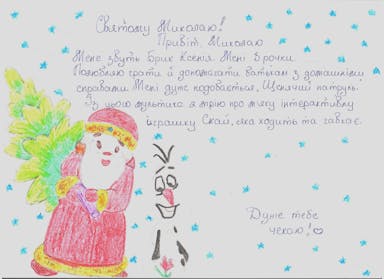 Святому Миколаю!
Привіт, Миколаю
Мене звуть Брик Ксенія. Мені 8 рочки.
Полюбляю грати й допомагати батькам з домашніми
справами. Мені дуже подобається, Щенячий патруль.
Із цього мультика я мрію про м'яку інтерактивну
іграшку Скай, яка ходить та гавкає.
Дуже тебе
чекаю!